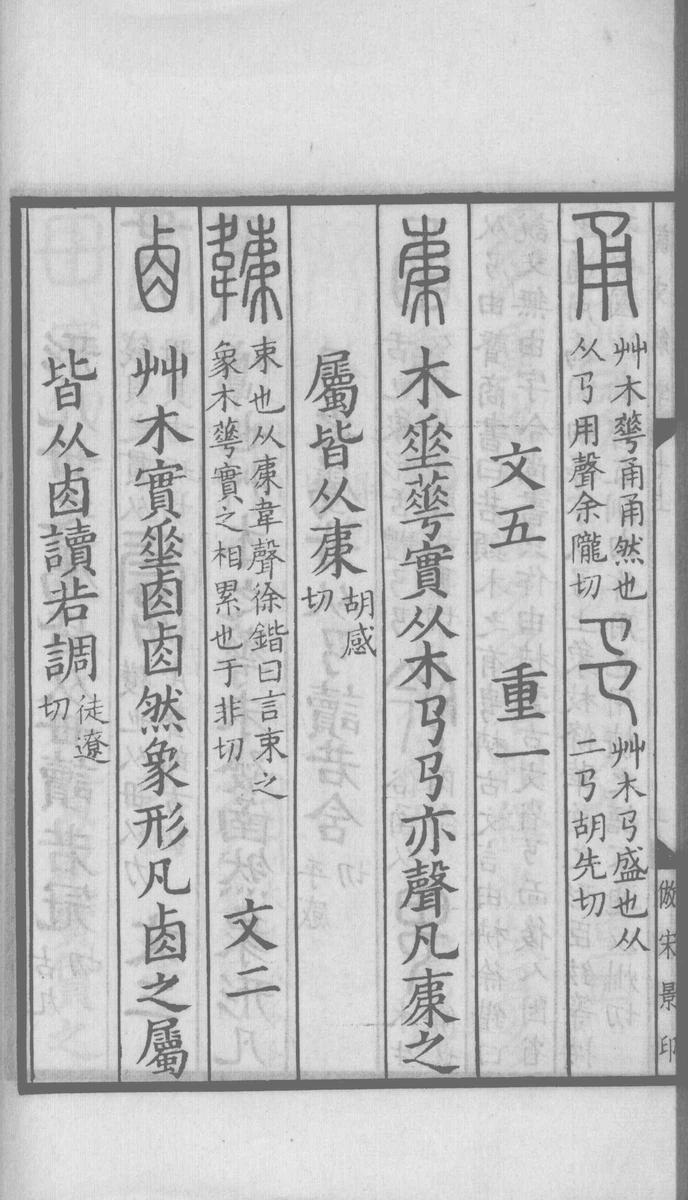 甬 艸木華甬甬然也从𢎘用聲余隴切 𢎜 艸木𢎘盛也从二𢎘胡先切
文五 重一
𣐺 木𠌶華實从木𢎘𢎘亦聲凡𣐺之
屬皆从𣐺胡感切
𣡾 束也从𣐺韋聲徐鍇曰言束之象木華實之相累也于非切 文二
𠧪 艸木實𠌶𠧪𠧪然象形凡𠧪之屬
皆从𠧪讀若調徒遼切
倣宋景印